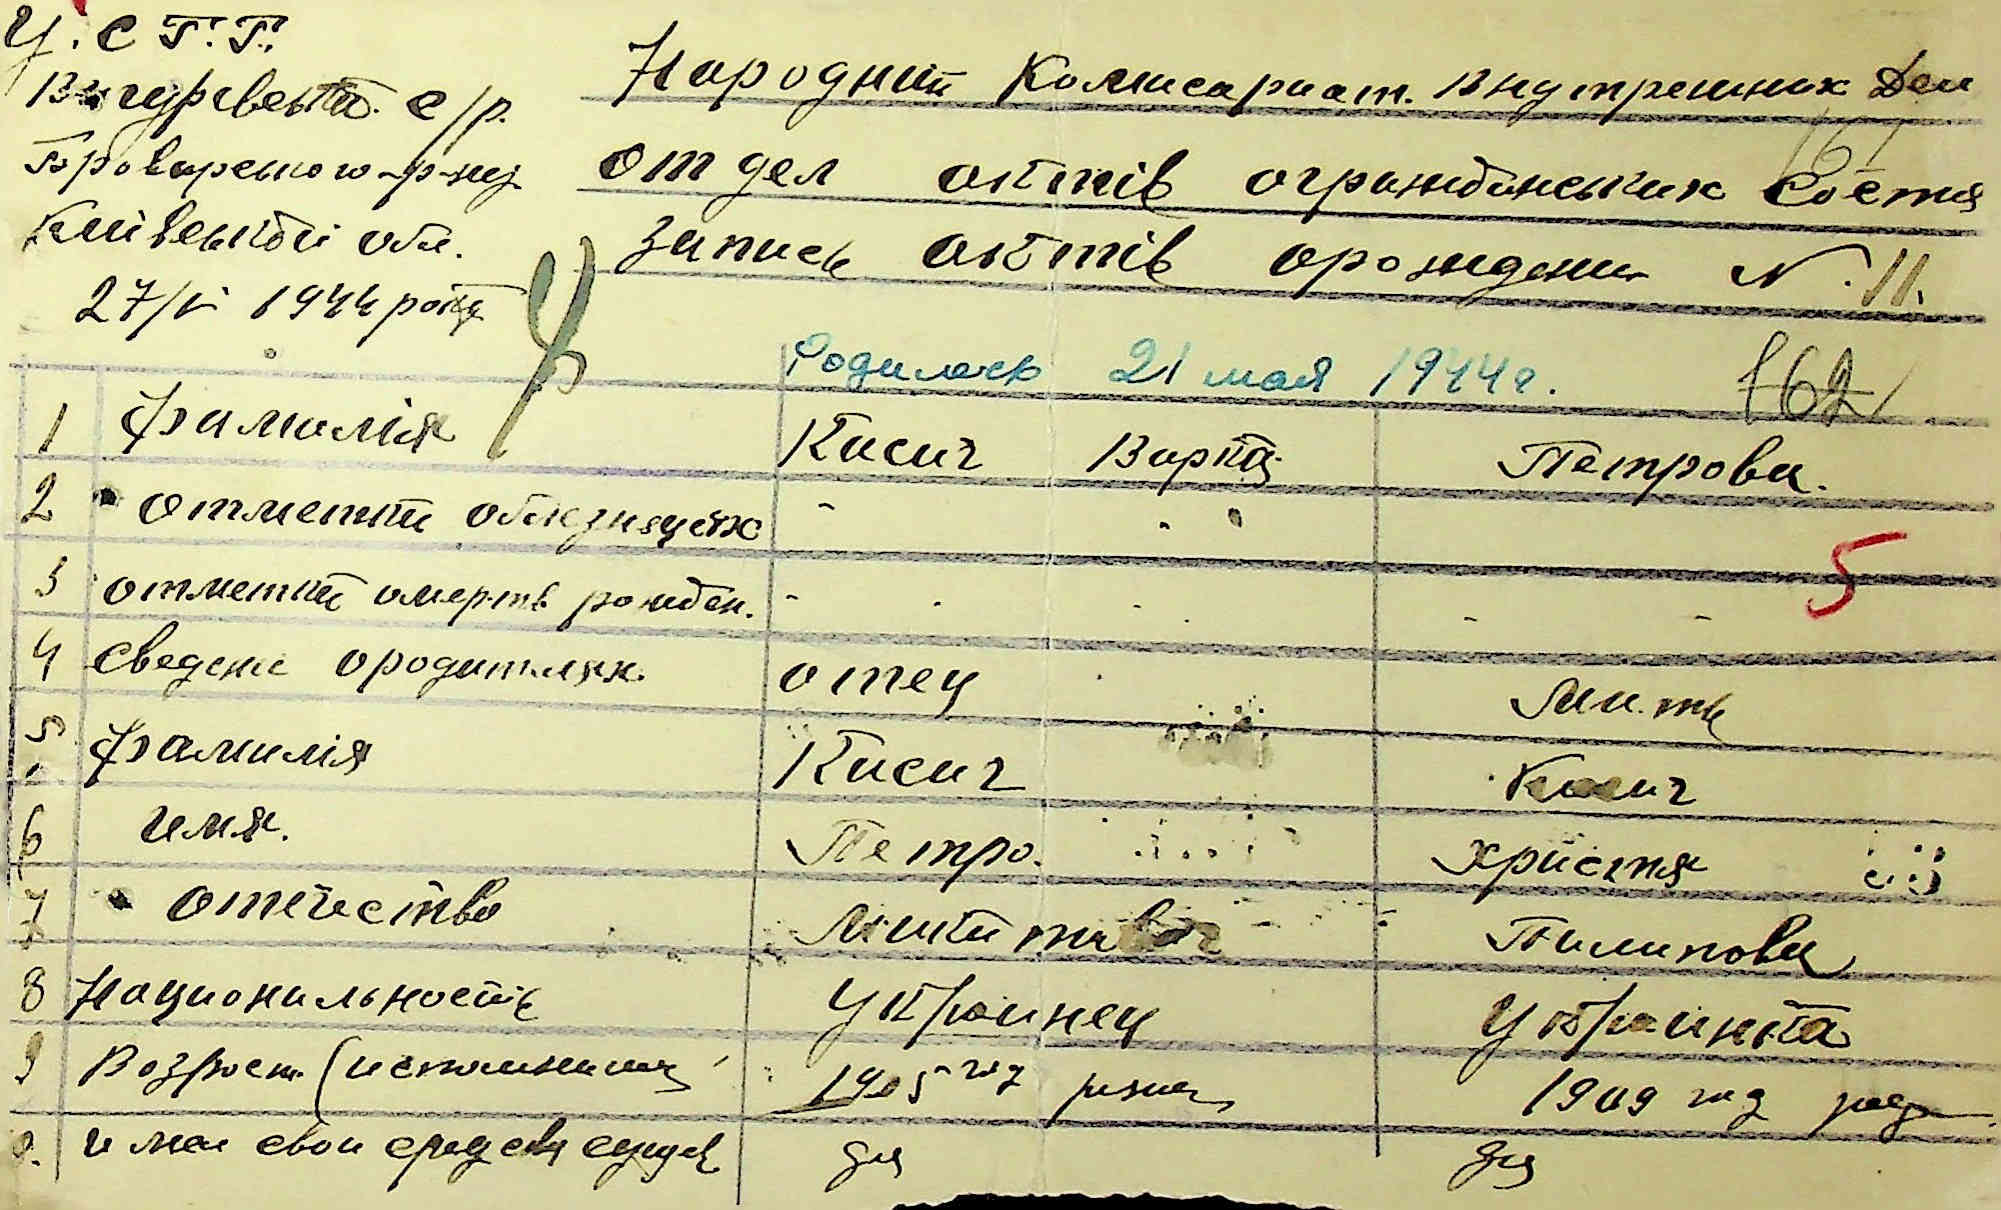 У.С.Г.Г.
Вигуревська с/р.
Броварського р-ну
Київської обл.
27/V 1944 року
Народний Комисариат. Внутрених Дел
отдел актів огражданських Состія
запись актів орождении N. 11.
161
162
Родилась 21 мая 1944 г.
1 Фамилія Кисич Варка Петровы.
2 отметки
3 отметки омертв рожден. - - -
4 Сведене ородителях. отец Мать
5 Фамилія Кисич Кисич
6 имя. Петро. Христя
7 отчество Пилиповы
8 Национальность Украинец Украинка
9 Возраст (исполнилось 1905 год 1909 год рожд
имел свои средств для для
5